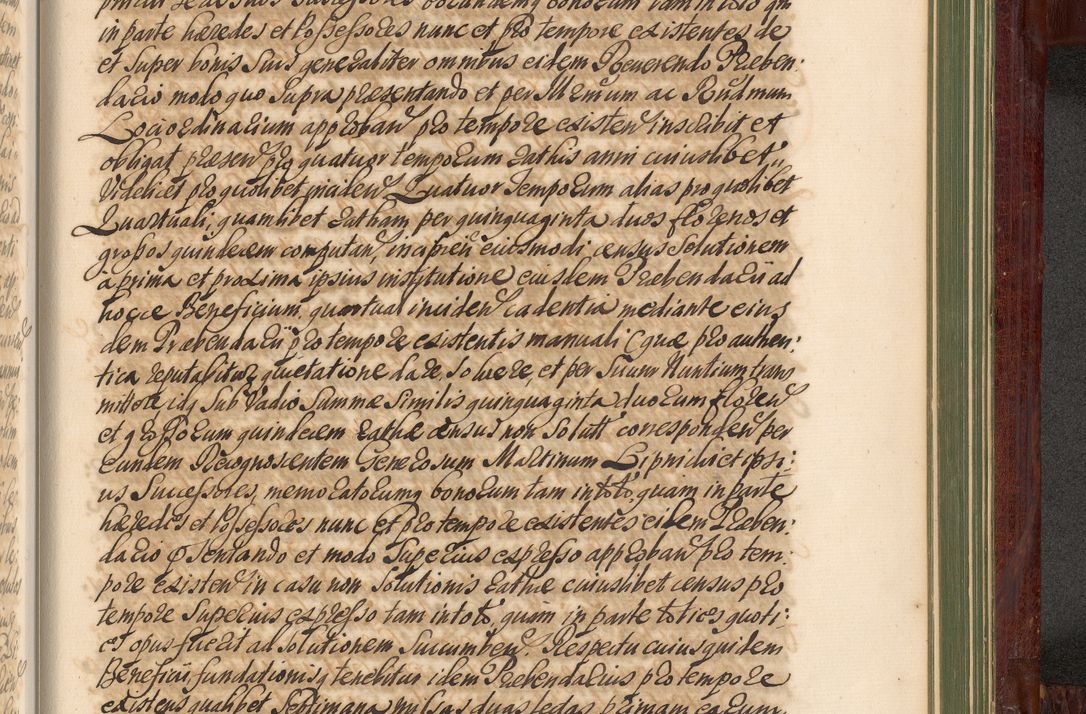 in parte hæredes et Possessores nunc et pro tempore existentes de
et super bonis suis generaliter omnibus eidem Reverendo Præben:
dario modo quo supra præsentando et per Illmum ac Rndmum
Loci ordinarium approban pro tempore existen inscribit et
obligat præsen pro quatuor temporum rathis anni cuiuslibet
Videlicet pro quolibet Quatuor Temporum alias pro quolibet
Quartuali, quamlibet ratham per quinquaginta duos florenos et
grossos quindecim computan, incipien eiusmodi census solutionem
à prima et proxima ipsius institutione eiusdem Præbendarii ad
hocce Beneficium, quartual inciden cadentia mediante eius
dem Præbendarii pro tempore existentis manuali (quæ pro authen:
tica reputabitur quietatione dare, solvere, et per suum Nuntium trans
mittere idq sub Vadio summæ similis quinquaginta duorum floren
et grossorum quindecim rathæ census non solutt corresponden per
eundem Recognoscentem Generosum Martinum Lipnicki et ipsi:
us Successores, memoratorumq bonorum tam in toto, quam in parte
hæredes et Possessores nunc et pro tempore existentes eidem Præben:
dario et modo superius expresso approban pro tem:
pore existen in casu non solutionis rathæ cuiuslibet census pro
tempore superius expresso tam in toto, quam in parte toties quoti:
es opus fuerit ad solutionem succumben. Respectu cuius quidem
Beneficii, fundationisq tenebitur idem Præbendarius pro tempore
existens qualibet septimana missas duas lectas primam earum